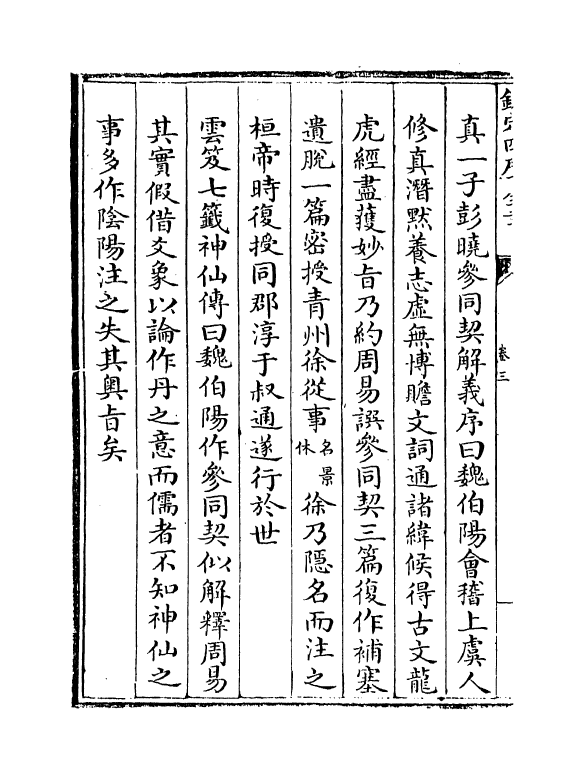 欽定四庫全書
卷三
真一子彭曉參同契解義序曰魏伯陽會稽上虞人
修真潛默養志虛無博贍文詞通諸緯候得古文龍
虎經盡獲妙旨乃約周易譔參同契三篇復作補塞
遺脫一篇密授青州徐從事名景休徐乃隱名而注之
桓帝時復授同郡淳于叔通遂行於世
雲笈七籤神仙傳曰魏伯陽作參同契似解釋周易
其實假借爻象以論作丹之意而儒者不知神仙之
事多作陰陽注之失其奧旨矣